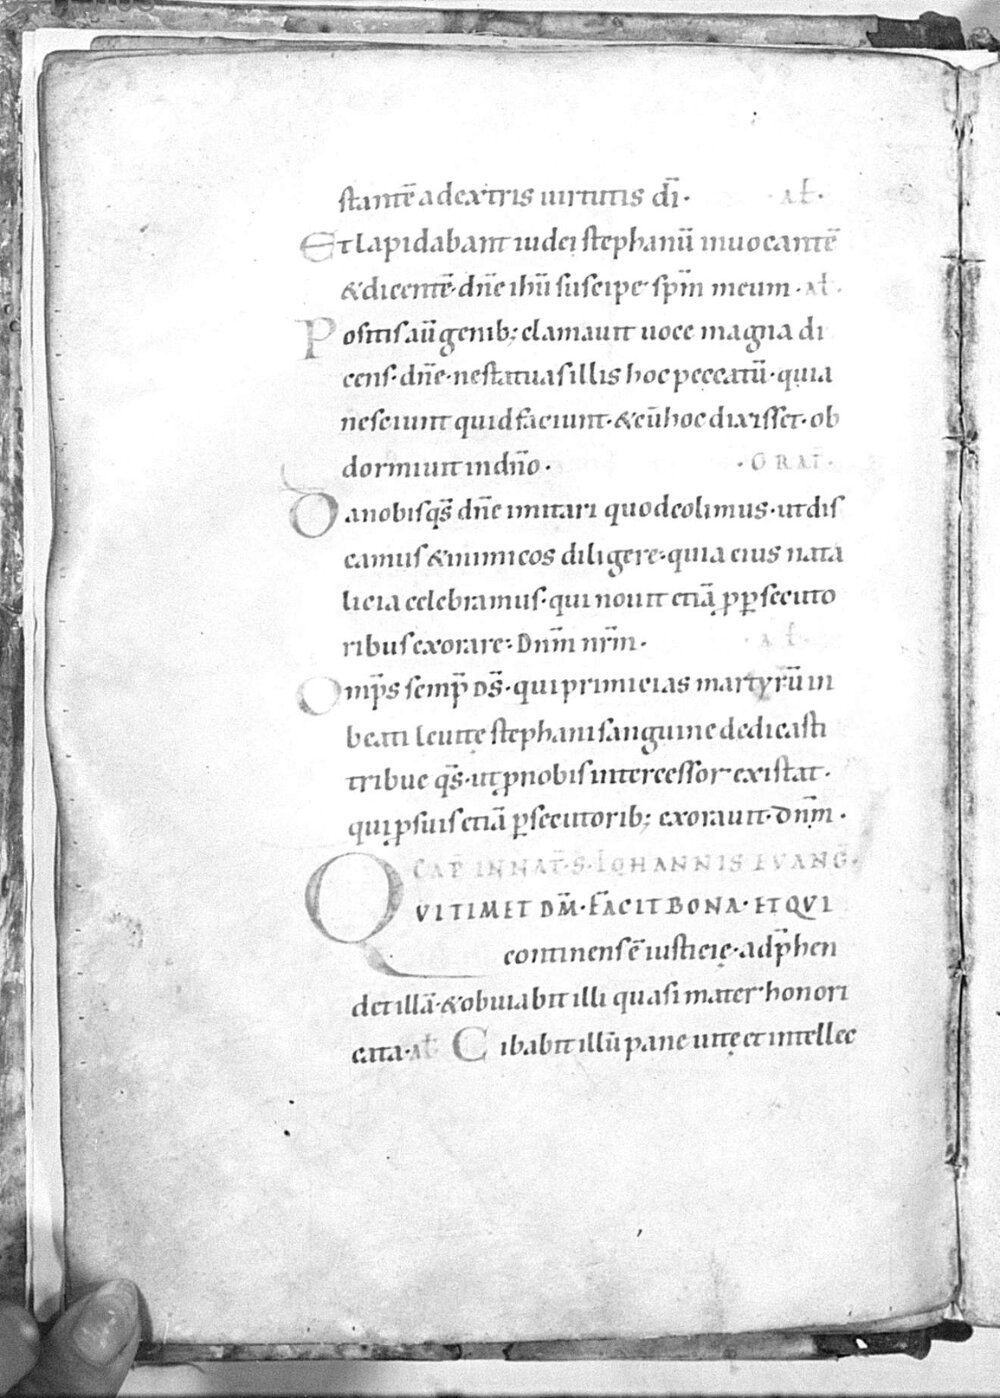 stantē adextris uirtutis dī· · al̄·
Et lapidabant iudei stephanū inuocantē
&dicentē· dn̄e ihū suscipe sp̄m meum· al̄·
Positis aū genib; clamauit uoce magna di
cens· dn̄e· ne statuas illis hoc peccatū· quia
nesciunt quid faciunt· & cū hoc dixisset· ob
dormiuit in dn̄o· · ORAT̄·
Da nobis qs̄ dn̄e imitari quod colimus· ut dis
camus & inimicos diligere· quia eius nata
licia celebramus· qui nouit etiā ꝓ ꝑsecuto
ribus exorare· Dn̄m nr̄m· · al̄·
Omp̄s semp̄ DS̄· qui primicias martyrū in
beati leuitę stephani sanguine dedicasti
tribue qs̄· ut ꝓ nobis intercessor existat·
qui ꝓ suis etiā ꝑsecutorib; exorauit· dn̄m·
CAP̄ IN NAT̄· S· IOHANNIS EVANḠ·
QVI TIMET DM̄· FACIT BONA· ET QVI
continens ē iusticię· adp̄hen
det illā· & obuiabit illi quasi mater honori
cata· al̄ Cibabit illū pane uitę et intellec